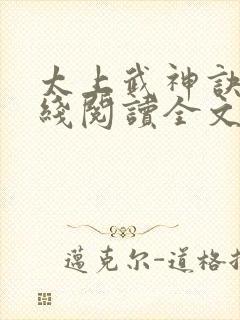 太上武神訣
綫閱讀全文
邁克尔-道格拉